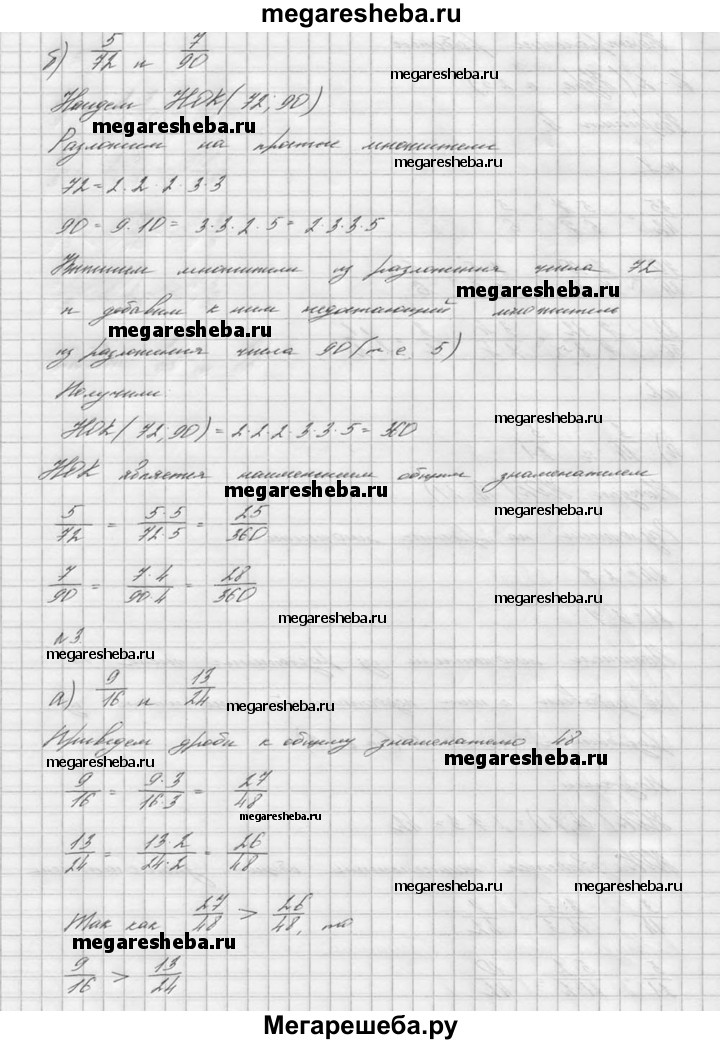 megaresheba.ru
б) 5/72 и 7/90
megaresheba.ru
Найдем НОК(72; 90)
megaresheba.ru
Разложим на простые множители
megaresheba.ru
72 = 2·2·2·3·3
90 = 9·10 = 3·3·2·5 = 2·3·3·5
Выпишем множители из разложения числа 72
megaresheba.ru
и добавим к ним недостающий множитель
megaresheba.ru
из разложения числа 90 (т.е. 5)
Получили:
megaresheba.ru
НОК(72; 90) = 2·2·2·3·3·5 = 360
НОК является наименьшим общим знаменателем
megaresheba.ru
megaresheba.ru
5/72 = 5·5/72·5 = 25/360
7/90 = 7·4/90·4 = 28/360
megaresheba.ru
megaresheba.ru
№3.
megaresheba.ru
а) 9/16 и 13/24
megaresheba.ru
megaresheba.ru
Приведем дроби к общему знаменателю 48
megaresheba.ru
megaresheba.ru
9/16 = 9·3/16·3 = 27/48
megaresheba.ru
13/24 = 13·2/24·2 = 26/48
megaresheba.ru
megaresheba.ru
Так как 27/48 > 26/48, то
megaresheba.ru
9/16 > 13/24
Мегарешеба.ру